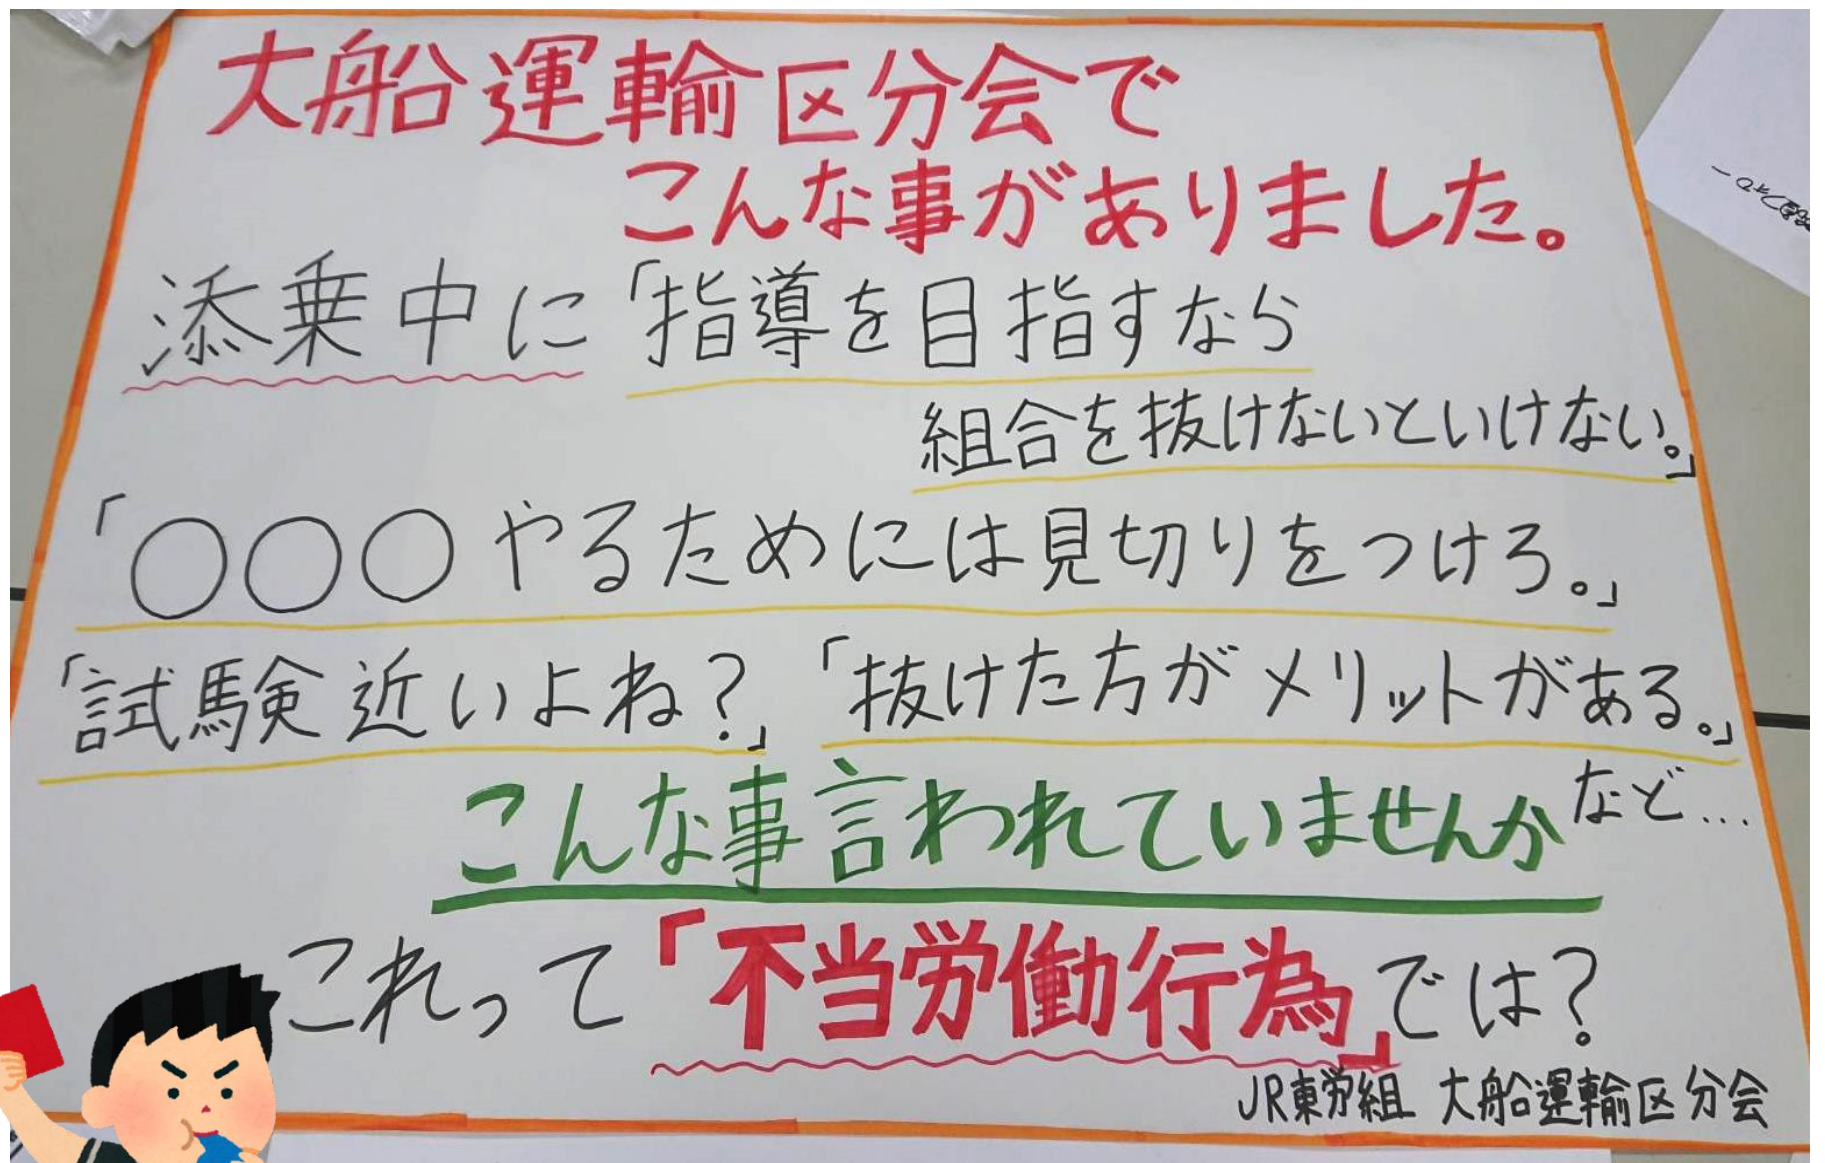 大船運輸区分会で
こんな事がありました。
添乗中に「指導を目指すなら
組合を抜けないといけない。」
「○○○やるためには見切りをつけろ。」
「試験近いよね?」「抜けた方がメリットがある。」
など...
こんな事言われていませんか
これって「不当労働行為」では?
JR東労組 大船運輸区分会